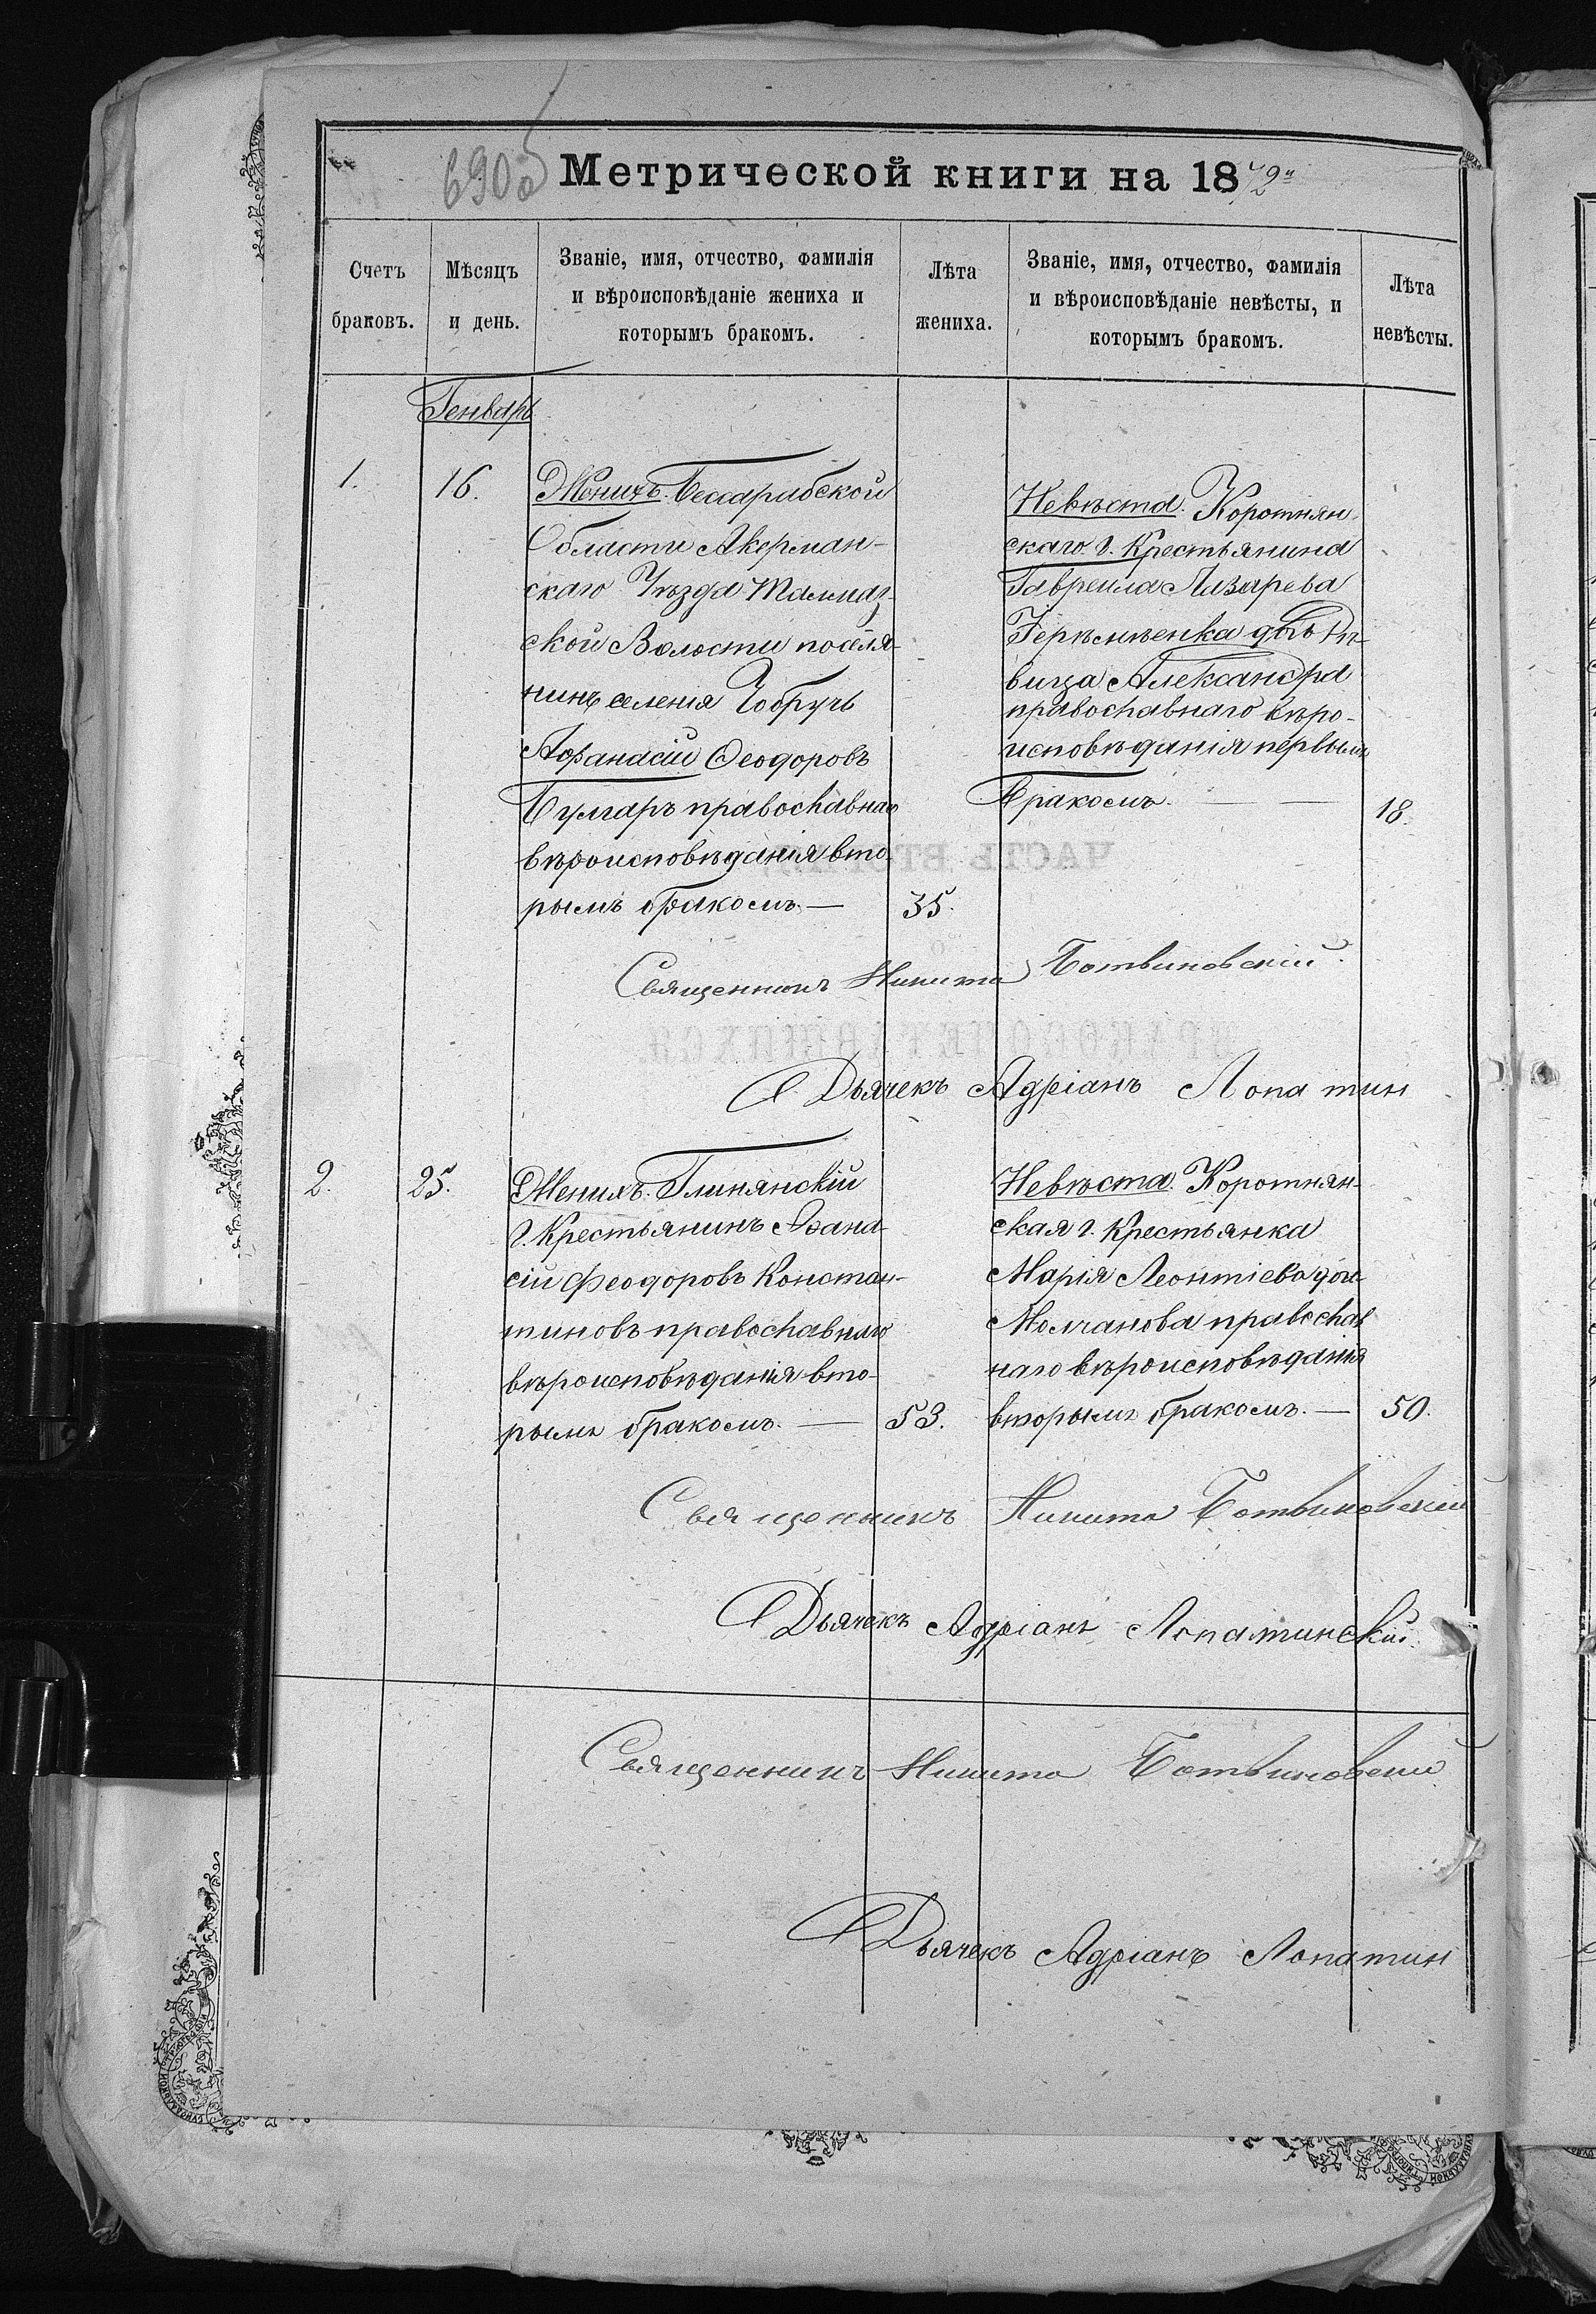 690 об
Метрической книги на 1872й
Счетъ
браковъ.
Мѣсяцъ
и день.
Званіе, имя, отчество, фамилія
и вѣроисповѣданіе жениха и
которымъ бракомъ.
Лѣта
жениха.
Званіе, имя, отчество, фамилія
и вѣроисповѣданіе невѣсты, и
которымъ бракомъ.
Лѣта
невѣсты.
Генварь
1.
16.
Женихъ. Бессарабской
Области Акерман-
скаго Уѣзда
ской Волости поселя-
нинъ селенія Чобручь
Афанасій Ѳеодоровъ
Булгаръ православнаго
вѣроисповѣданія вто
рымъ бракомъ. —
35.
Невѣста. Коротнян-
скаго г. Крестьянина
Гавреила Лазарева
Іерѣмѣенка дочь Дѣ-
вица Александра
православнаго вѣро-
исповѣданія первымъ
бракомъ. — —
18.
Священникъ Никита Ботвиновскій.
Дьячекъ Адріанъ Лопатин
2.
25.
Женихъ. Глинянскій
г. Крестьянинъ Аѳана-
сій Феодоровъ Констан-
тиновъ православнаго
вѣроисповѣданія вто-
рымъ бракомъ. —
53.
Невѣста. Коротнян-
ская г. Крестьянка
Марія Леонтіева дочь
Молчанова православ
наго вѣроисповѣданія
вторымъ бракомъ. —
50.
Священникъ Никита Ботвиновскій
Дьячекъ Адріанъ Лопатинскій.
Священникъ Никита Ботвиновскій
Дьячекъ Адріанъ Лопатин